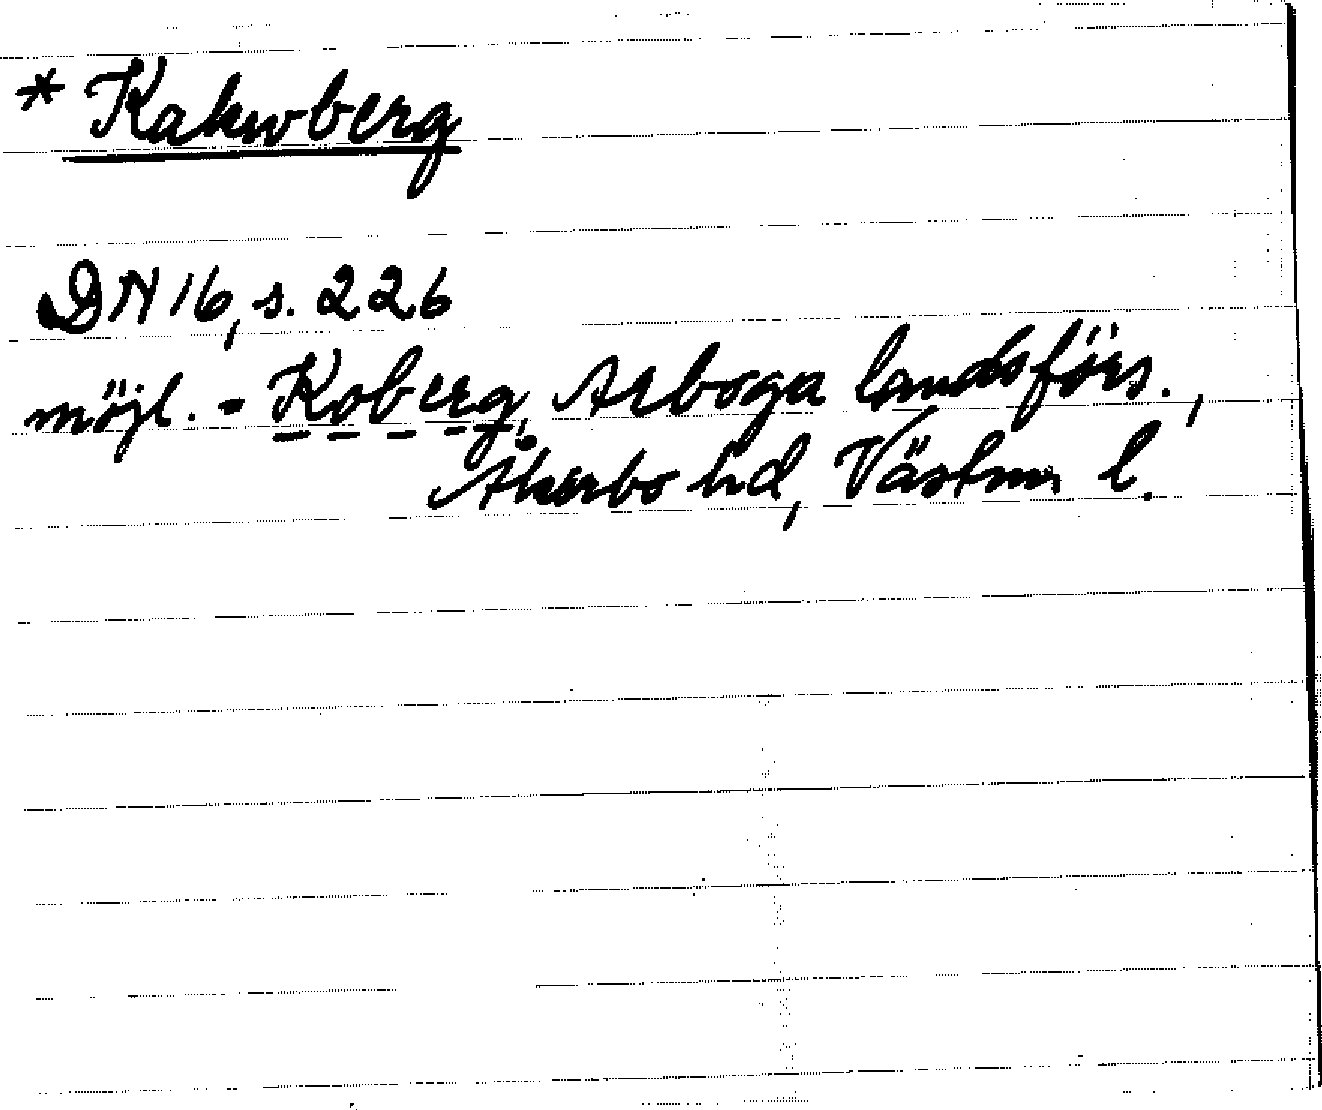 * Kakuvberg
DN 16, s. 226
möjl. = Koberg, Arboga landsförs.,
Åkerbo hd, Västm l.